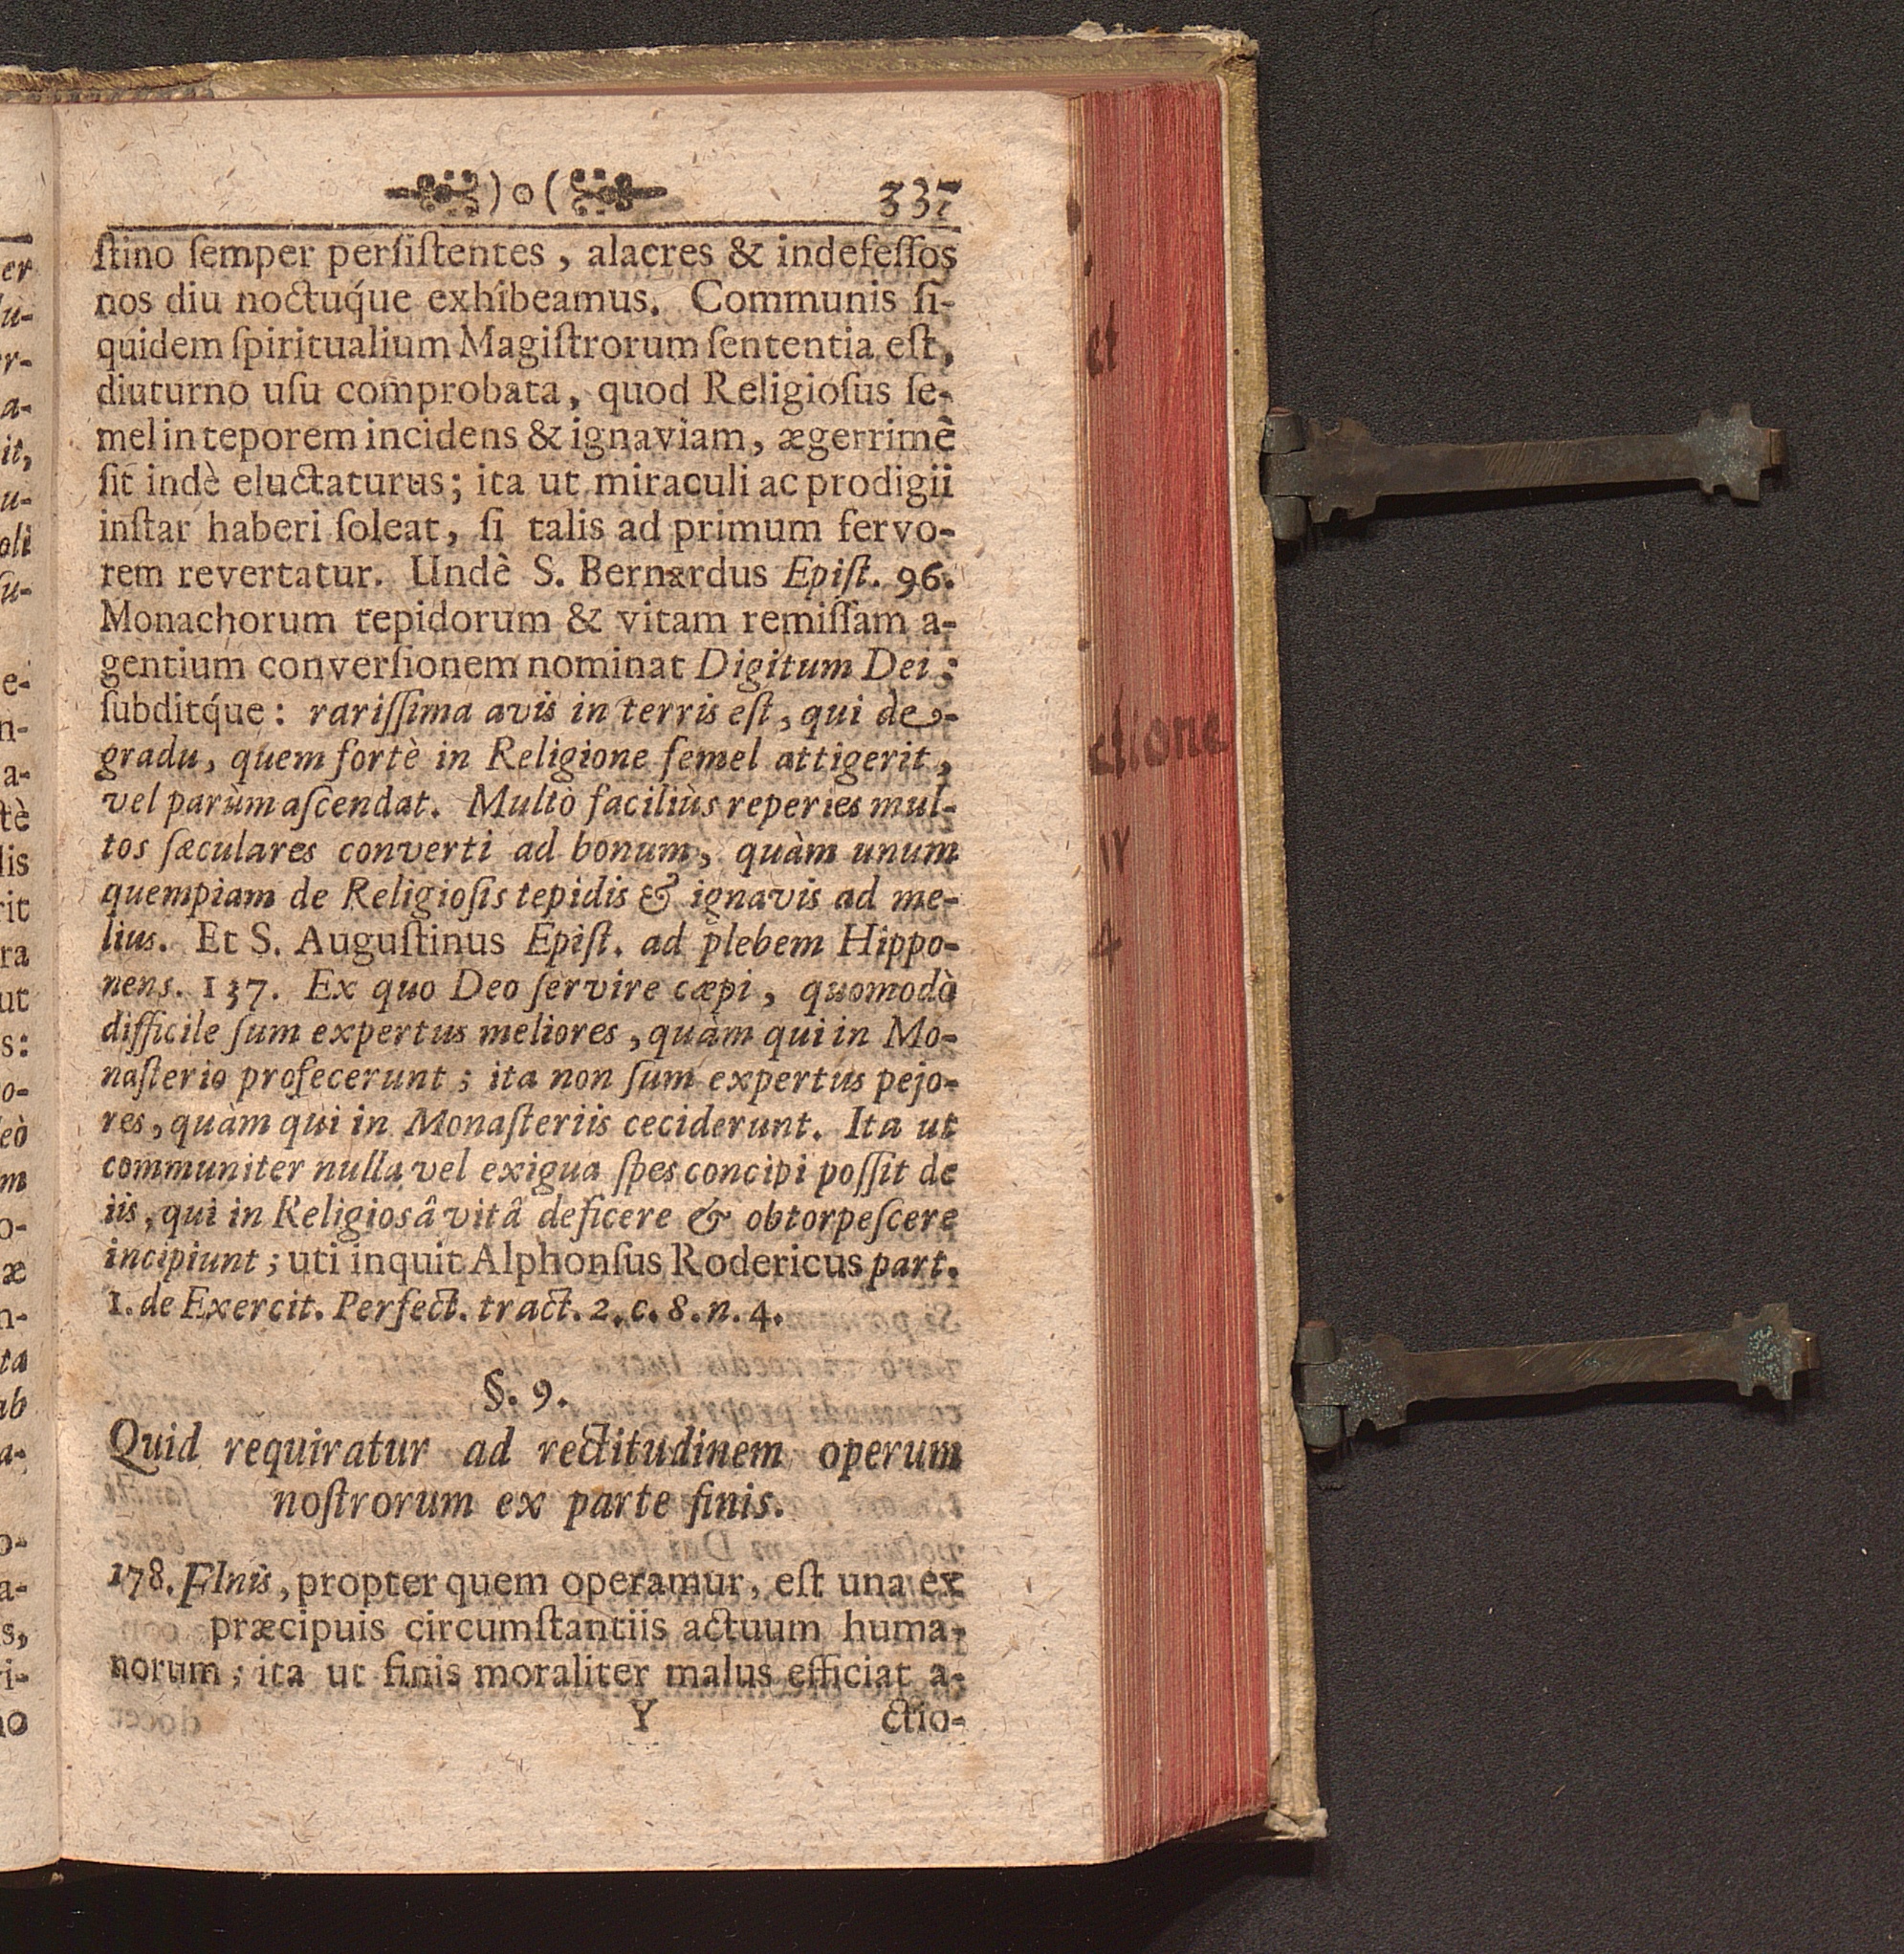 )o( 337
ſtino ſemper perſiſtentes, alacres & indefeſſos
nos diu noctuq́ue exhibeamus. Communis ſi-
quidem ſpiritualium Magiſtrorum ſententia eſt,
diuturno uſu comprobata, quod Religioſus ſe-
mel in teporem incidens & ignaviam, ægerrimè
ſit indè eluctaturus; ita ut miraculi ac prodigii
inſtar haberi ſoleat, ſi talis ad primum fervo-
rem revertatur. Undè S. Bernardus Epiſt. 96.
Monachorum tepidorum & vitam remiſſam a-
gentium converſionem nominat Digitum Dei;
ſubditq́ue: rariſſima avis in terris eſt, qui de-
gradu, quem fortè in Religione ſemel attigerit,
vel parùm aſcendat. Multò faciliùs reperies mul-
tos ſæculares converti ad bonum, quàm unum
quempiam de Religioſis tepidis & ignavis ad me-
lius. Et S. Auguſtinus Epiſt. ad plebem Hippo-
nens. 137. Ex quo Deo ſervire cæpi, quomodò
difficile ſum expertus meliores, quàm qui in Mo-
naſterio profecerunt; ita non ſum expertus pejo-
res, quàm qui in Monaſteriis ceciderunt. Ita ut
communiter nulla vel exigua ſpes concipi poſſit de
iis, qui in Religiosâ vitâ deficere & obtorpeſcere
incipiunt; uti inquit Alphonſus Rodericus part.
1. de Exercit. Perfect. tract. 2. c. 8. n. 4.
§. 9.
Quid requiratur ad rectitudinem operum
noſtrorum ex parte finis.
178. FInis, propter quem operamur, eſt una ex
præcipuis circumſtantiis actuum huma-
norum; ita ut finis moraliter malus efficiat a-
Y ctio-
et
ctione
4